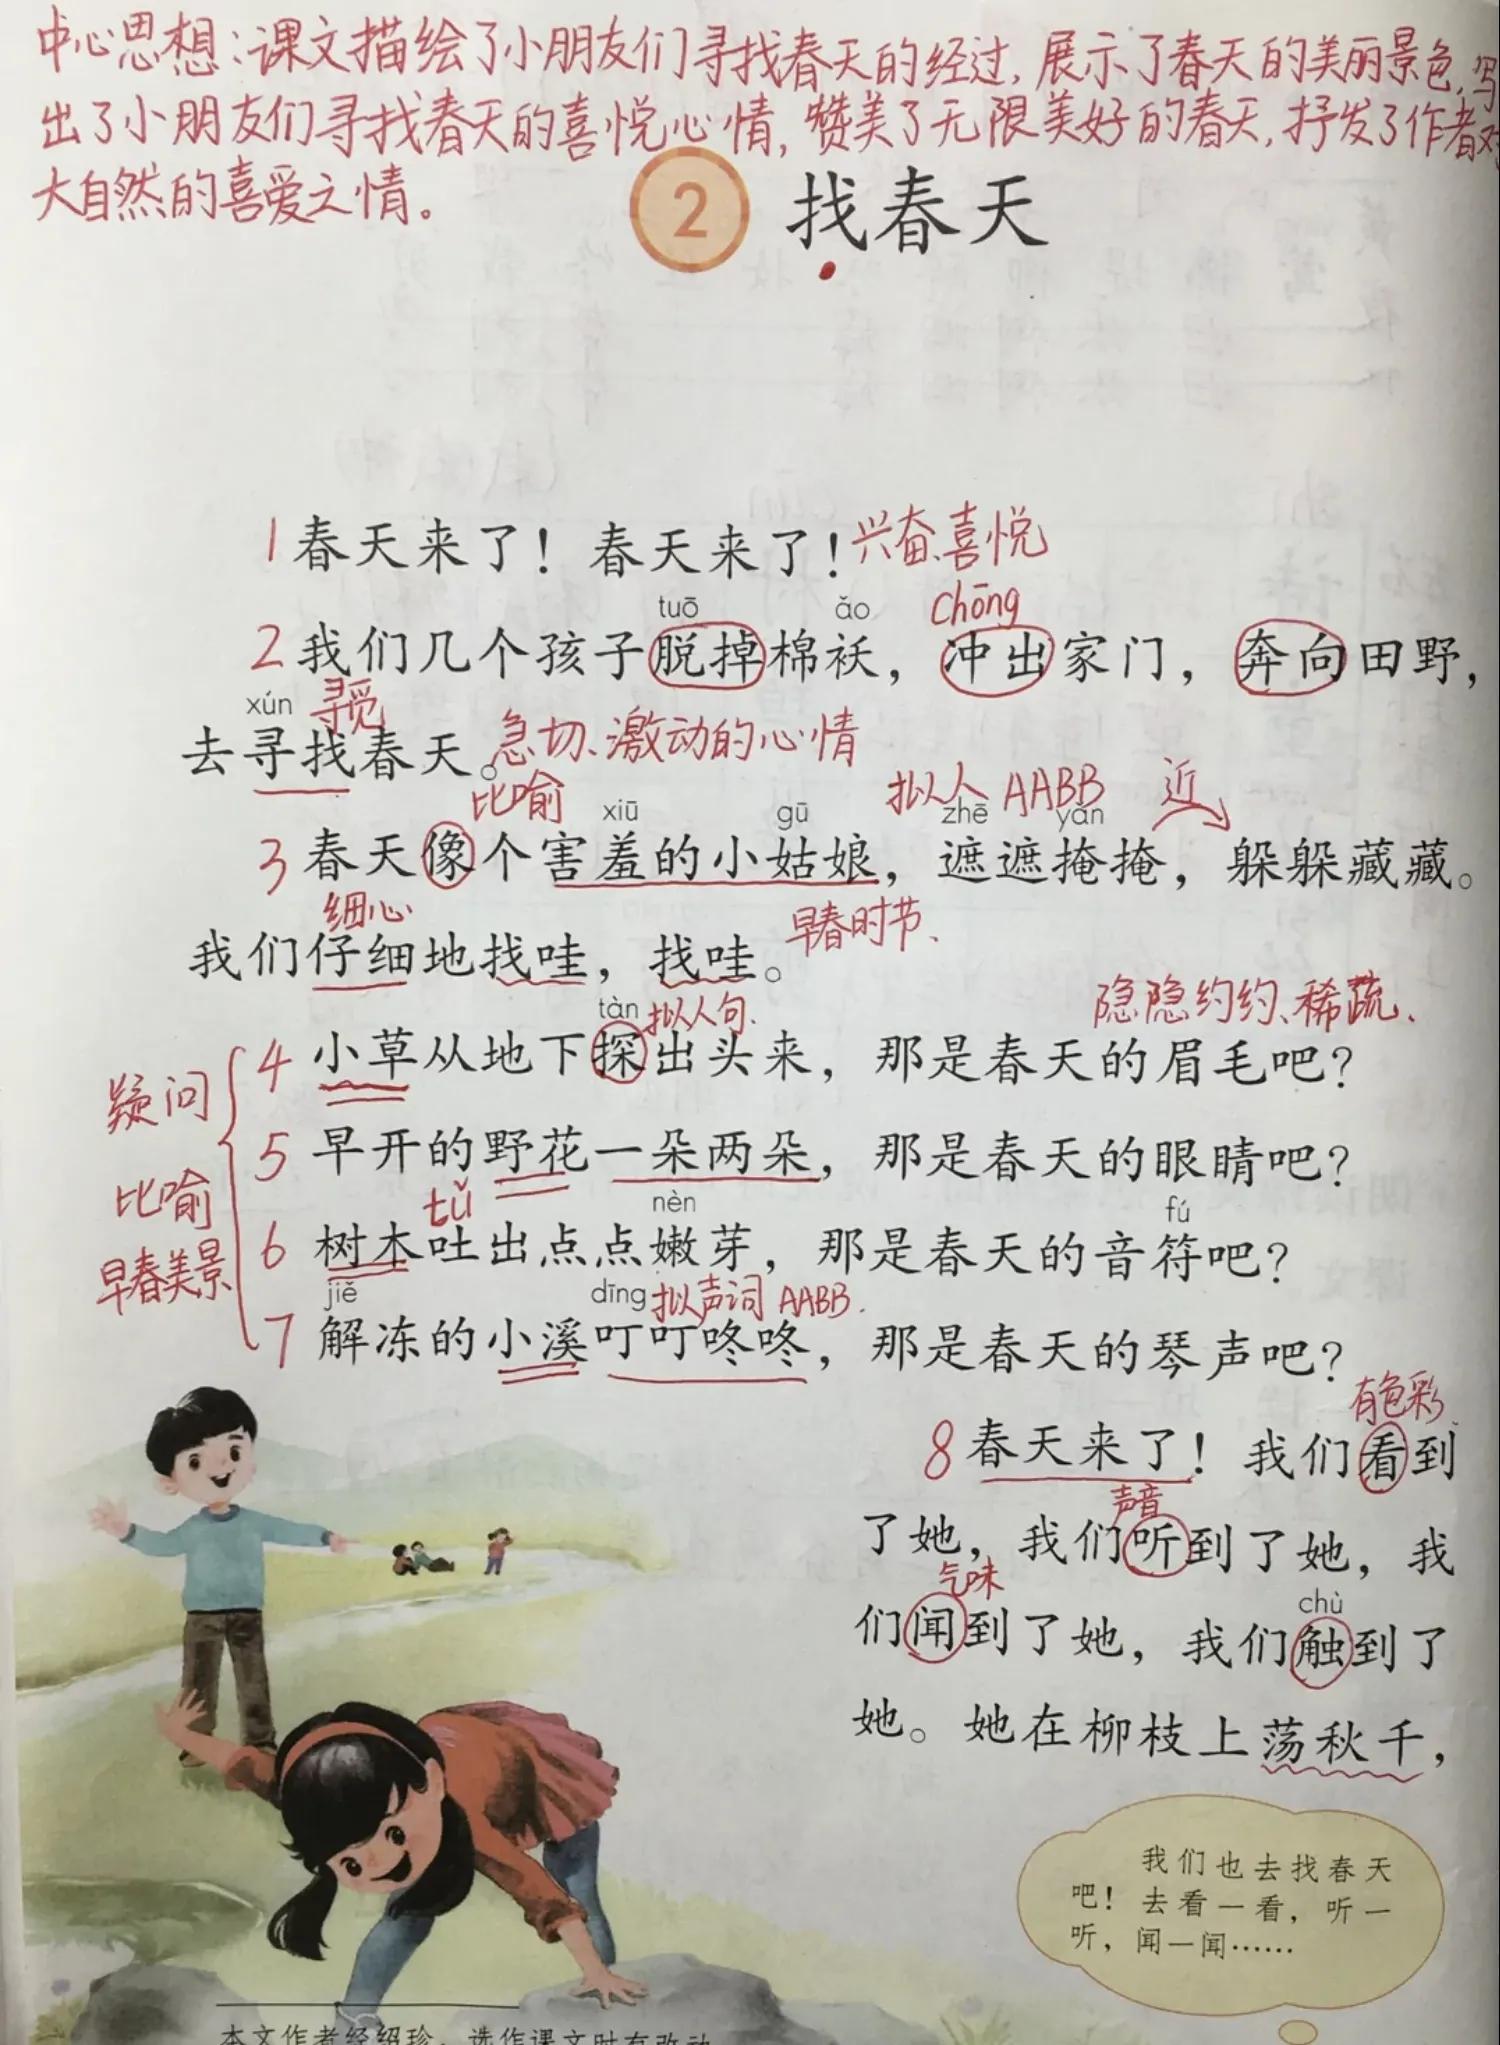 中心思想：课文描绘了小朋友们寻找春天的经过，展示了春天的美丽景色，写
出了小朋友们寻找春天的喜悦心情，赞美了无限美好的春天，抒发了作者对
大自然的喜爱之情。
2 找春天
1 春天来了！春天来了！兴奋、喜悦
tuō ǎo chōng
2 我们几个孩子脱掉棉袄，冲出家门，奔向田野，
xún 寻觅
去寻找春天。急切、激动的心情
比喻 拟人 AABB 近
xiū gū zhē yǎn
3 春天像个害羞的小姑娘，遮遮掩掩，躲躲藏藏。
细心 早春时节、
我们仔细地找哇，找哇。
tàn 拟人句. 隐隐约约、稀疏.
4 小草从地下探出头来，那是春天的眉毛吧？
疑问
5 早开的野花一朵两朵，那是春天的眼睛吧？
比喻 tǔ nèn fú
6 树木吐出点点嫩芽，那是春天的音符吧？
早春美景
jiě dīng 拟声词 AABB.
7 解冻的小溪叮叮咚咚，那是春天的琴声吧？
有色彩
8 春天来了！我们看到
声音
了她，我们听到了她，我
气味 chù
们闻到了她，我们触到了
她。她在柳枝上荡秋千，
我们也去找春天
吧！去看一看，听一
听，闻一闻……
本文作者经绍珍，选作课文时有改动